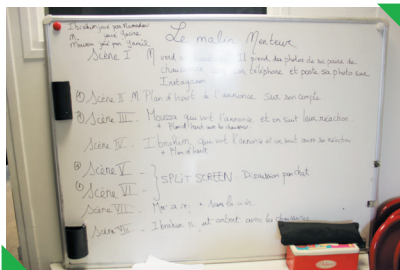 Ibrahim joué par Ramadan
M. joué Yacine
Moussa joué par Yanis
Le malin Menteur
Scène I M vend Il prend des photos de sa paire de
chaussures son téléphone et poste sa photo sur
Instagram
Scène II M Plan d'haut à l'annonce sur son compte.
Scène III - Moussa qui voit l'annonce et on suit leur réaction.
+ Plan d'haut sur la chaussure
Scène IV - Ibrahim qui voit l'annonce et on suit aussi sa réaction
+ Plan d'haut
Scène V -
SPLIT SCREEN Discussion par chat
Scène VI -
Scène VII -
Scène VIII - Ibrahim est content avec les chaussures